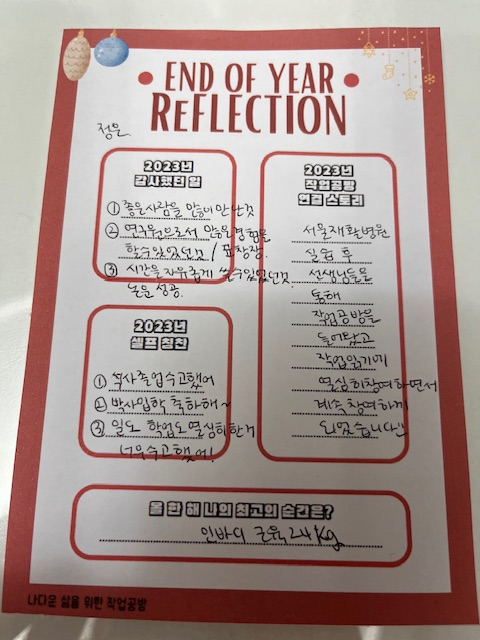 END OF YEAR
REFLECTION
정은
2023년
감사했던 일
① 좋은사람을 많이 만난것
② 연구원으로서 많은경험을
할수있었던것 / 표창장.
③ 시간을 자유롭게 쓸수있었던것
논문 성공.
2023년
셀프 칭찬
① 석사졸업수고했어
② 박사입학 축하해~
③ 일도 학업도 열심히한거
너무수고했어!
2023년
작업공방
연결 스토리
서울재활병원
실습 후
선생님들을
통해
작업공방을
들어왔고
작업읽기에
열심히참여하면서
계속참여하게
되었습니다!!
올 한 해 나의 최고의 순간은?
인바디 근육 24kg
나다운 삶을 위한 작업공방